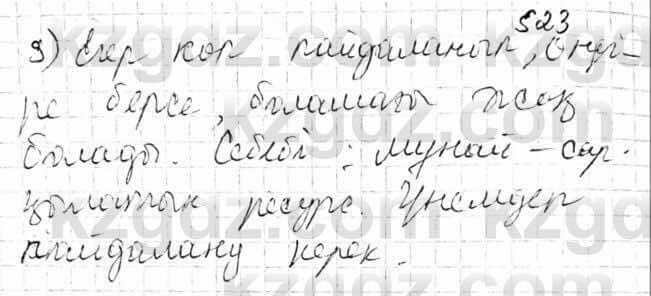 §23
9) Егер көп пайдаланып, өнді-
ре берсе, болашағы жоқ
болады. Себебі: мұнай – сар-
қылатын ресурс. Үнемдеп
пайдалану керек.